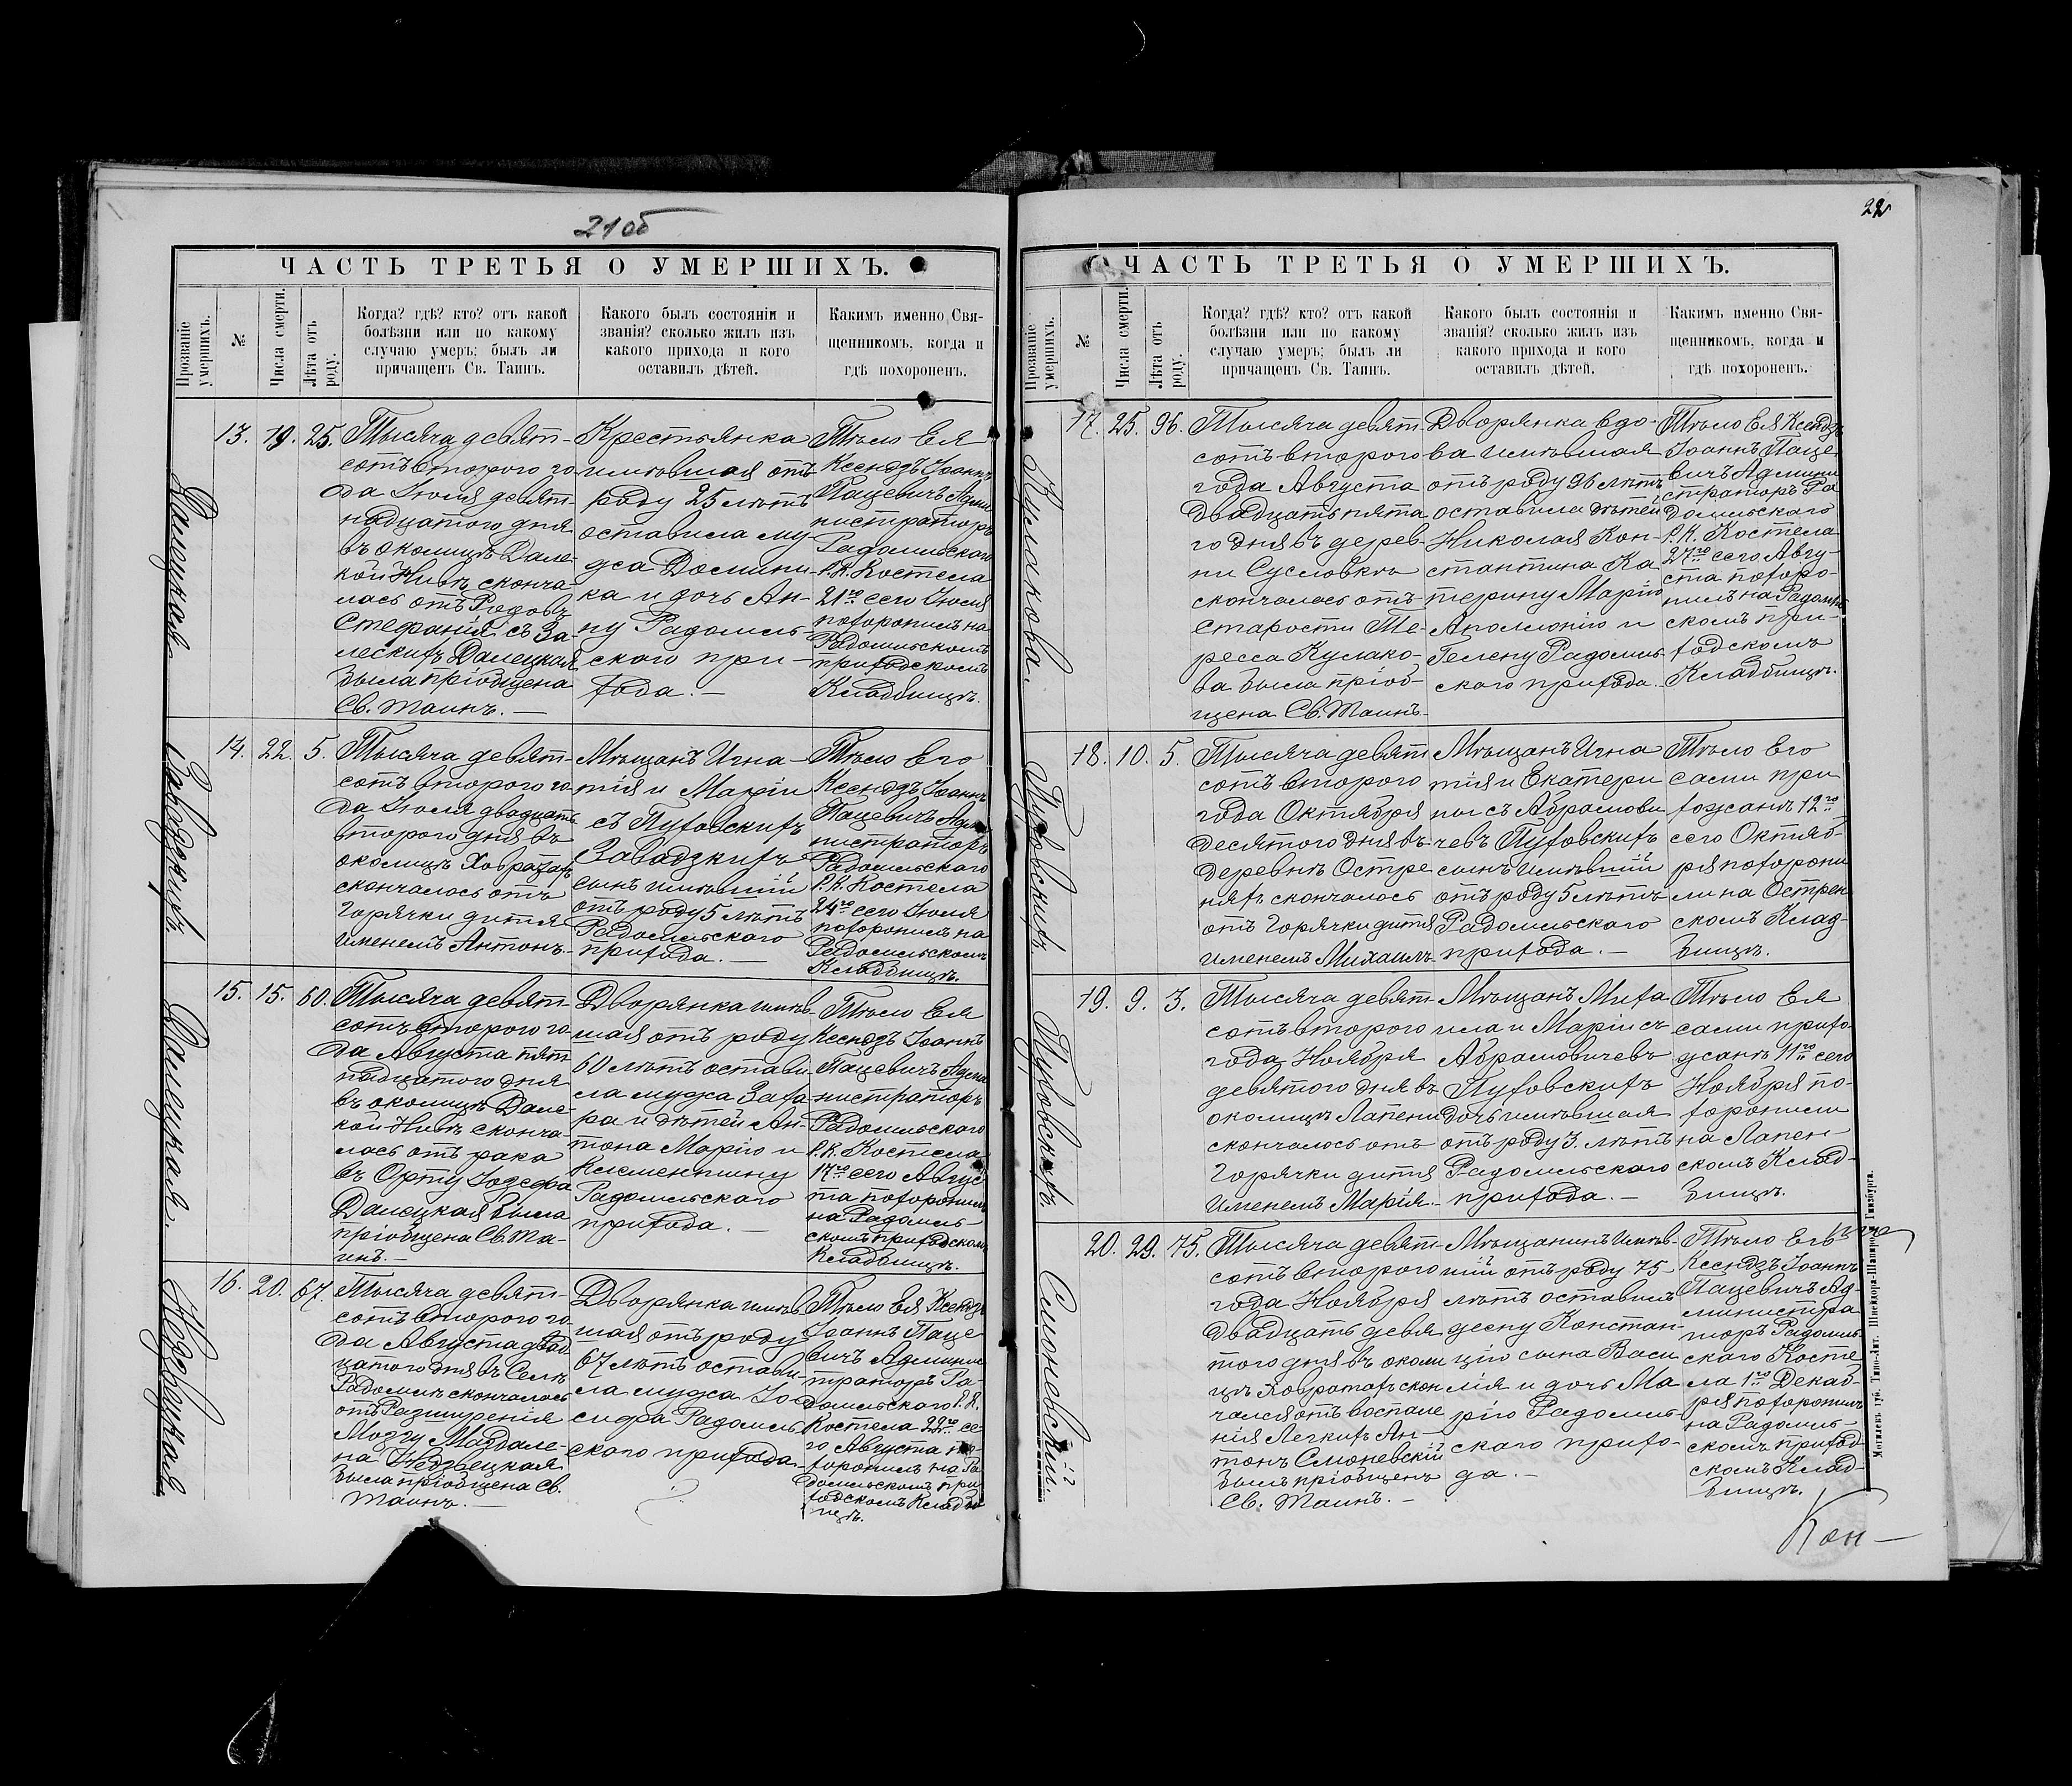 21об
ЧАСТЬ ТРЕТЬЯ О УМЕРШИХЪ.
Прозваніе умершихъ.
№
Числа смерти.
Лѣта отъ роду.
Когда? гдѣ? кто? отъ какой
болѣзни или по какому
случаю умеръ; былъ ли
причащенъ Св. Таинъ.
Какого былъ состоянія и
званія? сколько жилъ изъ
какого прихода и кого
оставилъ дѣтей.
Какимъ именно Свя-
щенникомъ, когда и
гдѣ похороненъ.
Далецкая.
13. 19. 25.
Тысяча девят-
сотъ второго го
да Іюля девят-
надцатого дня
въ околицѣ Дале-
кой Нивѣ сконча-
лась отъ Родовъ
Стефанія съ За-
лескихъ Далецкая
была пріобщена
Св. Таинъ. —
Крестьянка
имѣвшая отъ
роду 25 лѣтъ
оставила му-
жа Домини-
ка и дочь Ан-
ну Радомль-
ского при-
хода. —
Тѣло Ея
Ксендзъ Іоаннъ
Пацевичъ Адми
нистраторъ
Радомльского
Р. К. Костела
21го сего Іюля
похоронилъ на
Радомльскомъ
приходскомъ
Кладбищѣ.
Завадзкихъ.
14. 22. 5.
Тысяча девят-
сотъ второго го
да Іюля двадцать
второго дня въ
околицѣ Ховратахъ
скончалось отъ
горячки дитя
именемъ Антонъ. —
Мѣщанъ Игна-
тія и Маріи
съ Пуховскихъ
Завадзкихъ
сынъ имѣвшій
отъ роду 5 лѣтъ
Радомльского
прихода. —
Тѣло Его
Ксендзъ Іоаннъ
Пацевичъ Адми
нистраторъ
Радомльского
Р. К. Костела
24го сего Іюля
похоронилъ на
Радомльскомъ
Кладбищѣ.
Далецкая.
15. 15. 60.
Тысяча девят-
сотъ второго го
да Августа пят
надцатого дня
въ околицѣ Дале-
кой Нивѣ сконча-
лась отъ рака
въ Орту Іозефа
Далецкая была
пріобщена Св. Та-
инъ. —
Дворянка имѣв-
шая отъ роду
60 лѣтъ остави
ла мужа Заха
ра и дѣтей Ан-
тона Марію и
Клементину
Радомльского
прихода. —
Тѣло Ея
Ксендзъ Іоаннъ
Пацевичъ Адми
нистраторъ
Радомльского
Р. К. Костела
17го сего Авгус
та похоронилъ
на Радомль-
скомъ приходскомъ
Кладбищѣ.
Недзвецкая
16. 20. 67.
Тысяча девят-
сотъ второго го
да Августа двад
цатого дня въ Селѣ
Радомлѣ скончалась
отъ Разширенія
Мозгу Магдале-
на Недзвецкая
была пріобщена Св.
Таинъ. —
Дворянка имѣв
шая отъ роду
67 лѣтъ остави-
ла мужа Іо-
сифа Радомль
ского прихода —
Тѣло Ея Ксендзъ
Іоаннъ Паце
вичъ Админис
траторъ Ра-
домльского Р. К.
Костела 22го се-
го Августа по-
хоронилъ на Ра
домльскомъ при
ходскомъ Кладби
щѣ.
22
ЧАСТЬ ТРЕТЬЯ О УМЕРШИХЪ.
Прозваніе умершихъ.
№
Числа смерти.
Лѣта отъ роду.
Когда? гдѣ? кто? отъ какой
болѣзни или по какому
случаю умеръ; былъ ли
причащенъ Св. Таинъ.
Какого былъ состоянія и
званія? сколько жилъ изъ
какого прихода и кого
оставилъ дѣтей.
Какимъ именно Свя-
щенникомъ, когда и
гдѣ похороненъ.
Кулакова.
17. 25. 96.
Тысяча девят-
сотъ второго
года Августа
двадцать пята
го дня въ дерев-
ни Сусловкѣ
скончалась отъ
старости Те-
ресса Кулако-
ва была пріоб-
щена Св. Таинъ —
Дворянка вдо-
ва имѣвшая
отъ роду 96 лѣтъ
оставила дѣтей
Николая Кон-
стантина Ка-
терину Марію
Аполлонію и
Гелену Радомль-
ского прихода. —
Тѣло Ея Ксендзъ
Іоаннъ Паце
вичъ Админи
страторъ Ра
домльского
Р. К. Костела
27го сего Авгу-
ста похоро-
нилъ на Радомль
скомъ при-
ходскомъ
Кладбищѣ.
Пуховскихъ.
18. 10. 5.
Тысяча девят
сотъ второго
года Октября
десятого дня въ
деревнѣ Остре
няхъ скончалось
отъ горячки дитя
именемъ Михаилъ
Мѣщанъ Игна
тія и Екатери
ны съ Абрамови
чевъ Пуховскихъ
сынъ имѣвшій
отъ роду 5 лѣтъ
Радомльского
прихода. —
Тѣло Его
сами при
хожанѣ 12го
сего Октяб-
ря похорони
ли на Острен
скомъ Клад-
бищѣ.
Пуховскихъ.
19. 9. 3.
Тысяча девят
сотъ второго
года Ноября
девятого дня въ
околицѣ Лапени
скончалось отъ
горячки дитя
именемъ Марія. —
Мѣщанъ Миха
ила и Маріи съ
Абрамовичевъ
Пуховскихъ
дочь имѣвшая
отъ роду 3. лѣтъ
Радомльского
прихода. —
Тѣло Ея
сами прихо-
жанѣ 11го сего
Ноября по-
хоронили
на Лапен-
скомъ Клад-
бищѣ.
Смоневскій.
20. 29. 75.
Тысяча девят-
сотъ второго
года Ноября
двадцать девя
того дня въ околи
цѣ Ховратахъ скон
чался отъ воспале
нія Легкихъ Ан-
тонъ Смоневскій
былъ пріобщенъ
Св. Таинъ. —
Мѣщанинъ имѣв-
шій отъ роду 75
лѣтъ оставилъ
жену Констан-
цію сына Васи
лія и дочь Ма
рію Радомль-
ского прихо-
да. —
Тѣло Его
Ксендзъ Іоаннъ
Пацевичъ Ад-
министра
торъ Радомль-
скаго Косте
ла 1го Декаб-
ря похоронилъ
на Радомль-
скомъ приход-
скомъ Клад-
бищѣ.
Могилевъ губ. Типо-Лит. Шнейдора-Шапиро и Гинзбурга.
Кон —